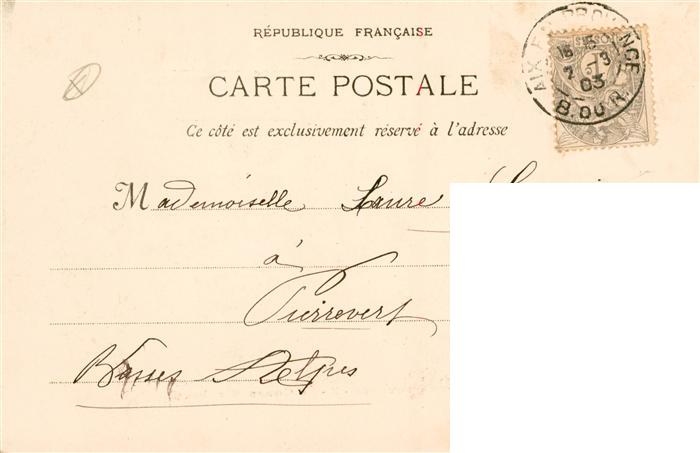 RÉPUBLIQUE FRANÇAISE
CARTE POSTALE
Ce côté est exclusivement réservé à l'adresse
AIX EN PROVENCE
B. DU R.
03
Mademoiselle Laure
à
Pierrevert
Basses Alpes